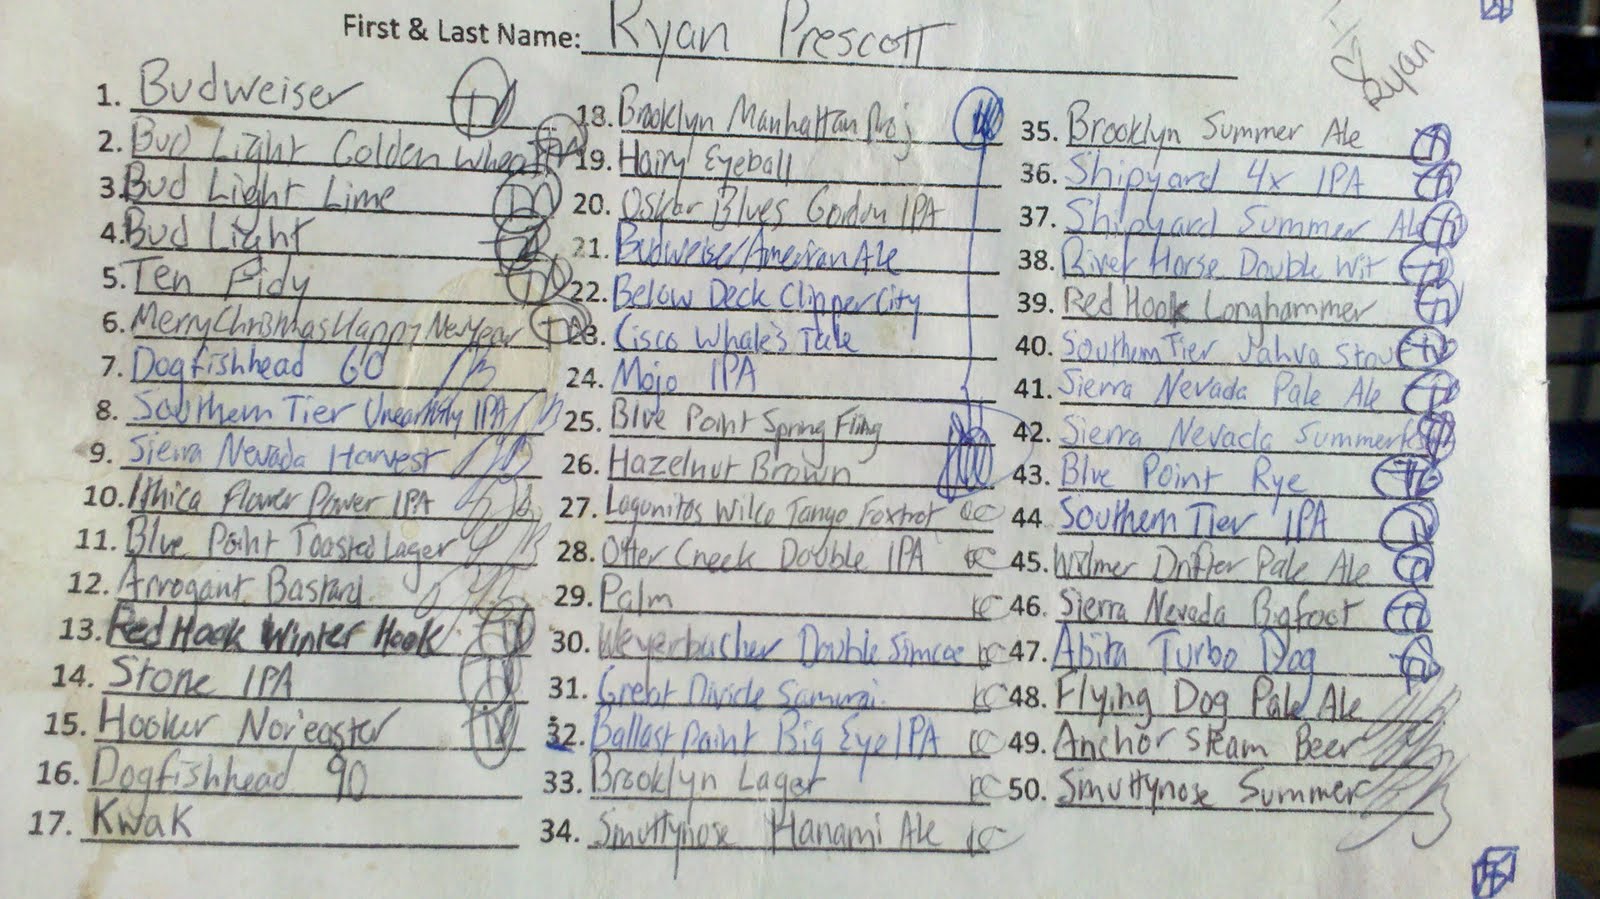 First & Last Name: Ryan Prescott
Ryan
1. Budweiser
2. Bud Light Golden Wheat
3. Bud Light Lime
4. Bud Light
5. Ten Fidy
6. Merry Christmas Happy New Year
7. Dogfishhead 60
8. Southern Tier Unearthly IPA
9. Sierra Nevada Harvest
10. Ithica Flower Power IPA
11. Blue Point Toasted Lager
12. Arrogant Bastard
13. Red Hook Winter Hook
14. Stone IPA
15. Hooker Nor'easter
16. Dogfishhead 90
17. Kwak
18. Brooklyn Manhattan Proj
19. Hairy Eyeball
20. Oskar Blues Gordon IPA
21. Budweiser/American Ale
22. Below Deck Clipper City
23. Cisco Whale's Tale
24. Mojo IPA
25. Blue Point Spring Fling
26. Hazelnut Brown
27. Lagunitos Wilco Tango Foxtrot
28. Otter Creek Double IPA
29. Palm KC
30. Weyerbacher Double Simcoe KC
31. Great Divide Samurai KC
32. Ballast Point Big Eye IPA KC
33. Brooklyn Lager KC
34. Smuttynose Hanami Ale KC
35. Brooklyn Summer Ale
36. Shipyard 4x IPA
37. Shipyard Summer Ale
38. River Horse Double Wit
39. Red Hook Longhammer
40. Southern Tier Jahva Stout
41. Sierra Nevada Pale Ale
42. Sierra Nevada Summerfest
43. Blue Point Rye
44. Southern Tier IPA
45. Drifter Pale Ale
46. Sierra Nevada Bigfoot
47. Abita Turbo Dog
48. Flying Dog Pale Ale
49. Anchor Steam Beer
50. Smuttynose Summer